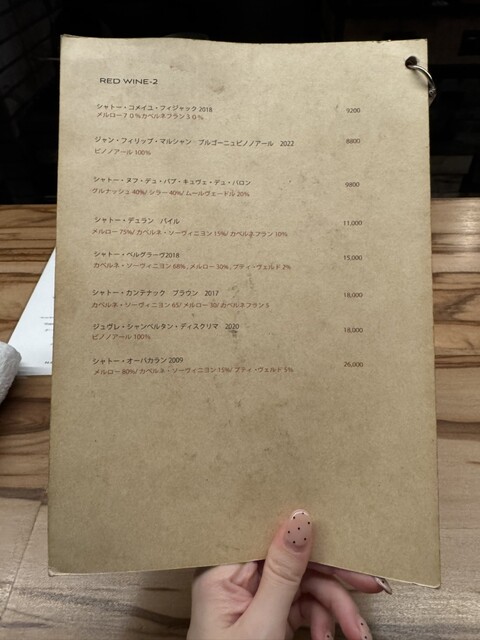 RED WINE-2
シャトー・コメイユ・フィジャック 2018 9200
メルロー７０％カベルネフラン３０％
ジャン・フィリップ・マルシャン ブルゴーニュピノノアール 2022 8800
ピノノアール 100%
シャトー・ヌフ・デュ・パプ・キュヴェ・デュ・バロン 9800
グルナッシュ 40%/ シラー 40%/ ムールヴェードル 20%
シャトー・デュラン バイル 11,000
メルロー 75%/ カベルネ・ソーヴィニヨン 15%/ カベルネフラン 10%
シャトー・ベルグラーヴ2018 15,000
カベルネ・ソーヴィニヨン 68%、メルロー 30%、プティ・ヴェルド 2%
シャトー・カンテナック ブラウン 2017 18,000
カベルネ・ソーヴィニヨン 65/ メルロー 30/ カベルネフラン 5
ジュヴレ・シャンベルタン・ディスクリマ 2020 18,000
ピノノアール 100%
シャトー・オーバカラン 2009 26,000
メルロー 80%/ カベルネ・ソーヴィニヨン 15%/ プティ・ヴェルド 5%